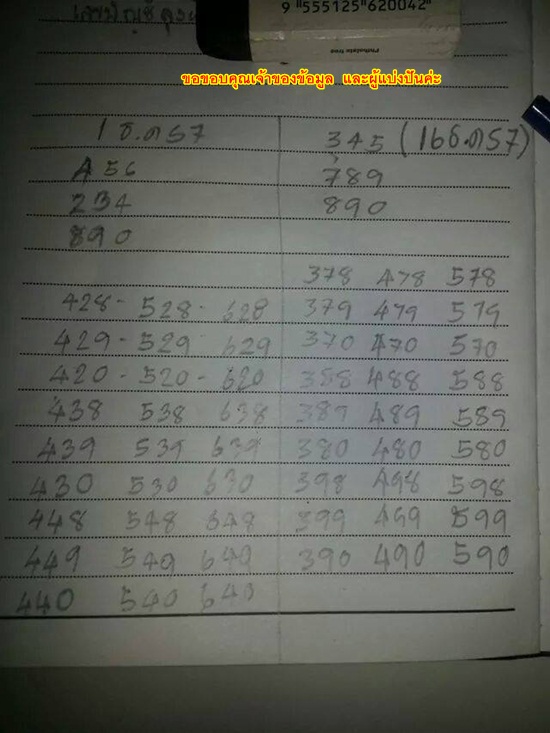 9 "555125"620042"
Phthalate free
ขอขอบคุณเจ้าของข้อมูล และผู้แบ่งปันค่ะ
1 ธ.ค 57 345 (16ธ.ค57)
456 789
234 890
890
378 478 578
428 - 528 - 628 379 479 579
429 - 529 - 629 370 470 570
420 - 520 - 620 388 488 588
438 538 638 389 489 589
439 539 639 380 480 580
430 530 630 398 498 598
448 548 648 399 499 599
449 549 640 390 490 590
440 540 640